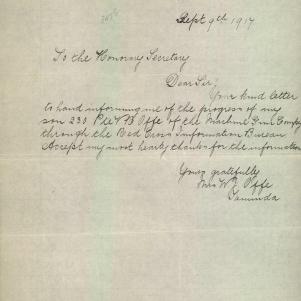 Sept 9th 1917
To the Honorary Secretary
Dear Sir,
Your kind letter
to hand informing me of the progress of my
son 230 Pte W B Offe of the Machine Gun Company
through the Red Cross Information Bureau
Accept my most hearty thanks for the information
Yours gratefully
Mrs W E Offe
Tanunda